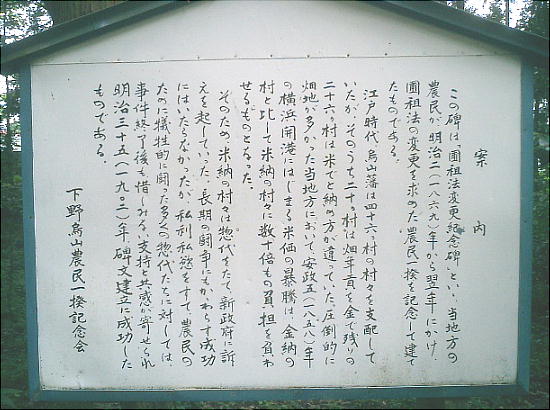 案内
この碑は「圃租法変更紀念碑」といい、当地方の
農民が明治二(一八六九)年から翌年にかけ、
圃租法の変更を求めた「農民一揆を記念して建て
たものである。
江戸時代、烏山藩は四十六ヶ村の村々を支配して
いたが、そのうち二十ヶ村は畑年貢を金で残りの
二十六ヶ村は米でと納め方が違っていた。圧倒的に
畑地が多かった当地方において、安政五(一八五八)年
の横浜開港にはじまる米価の暴騰は、金納の
村と比して米納の村々に数十倍もの負担を負わ
せるものとなった。
そのため米納の村々は惣代をたて、新政府に訴
えを起していった。長期の闘争にもかかわらず成功
にはいたらなかったが、私利私慾をすて、農民の
ために犠牲的に闘った多くの惣代たちに対しては、
事件終了後も惜しみない支持と共感が寄せられ
明治三十五(一九〇二)年、碑文建立に成功した
ものである。
下野烏山農民一揆記念会